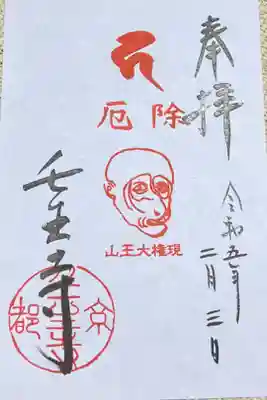 奉拝
令和五年
二月三日
厄除
山王大権現
壬生寺
京都
壬生寺